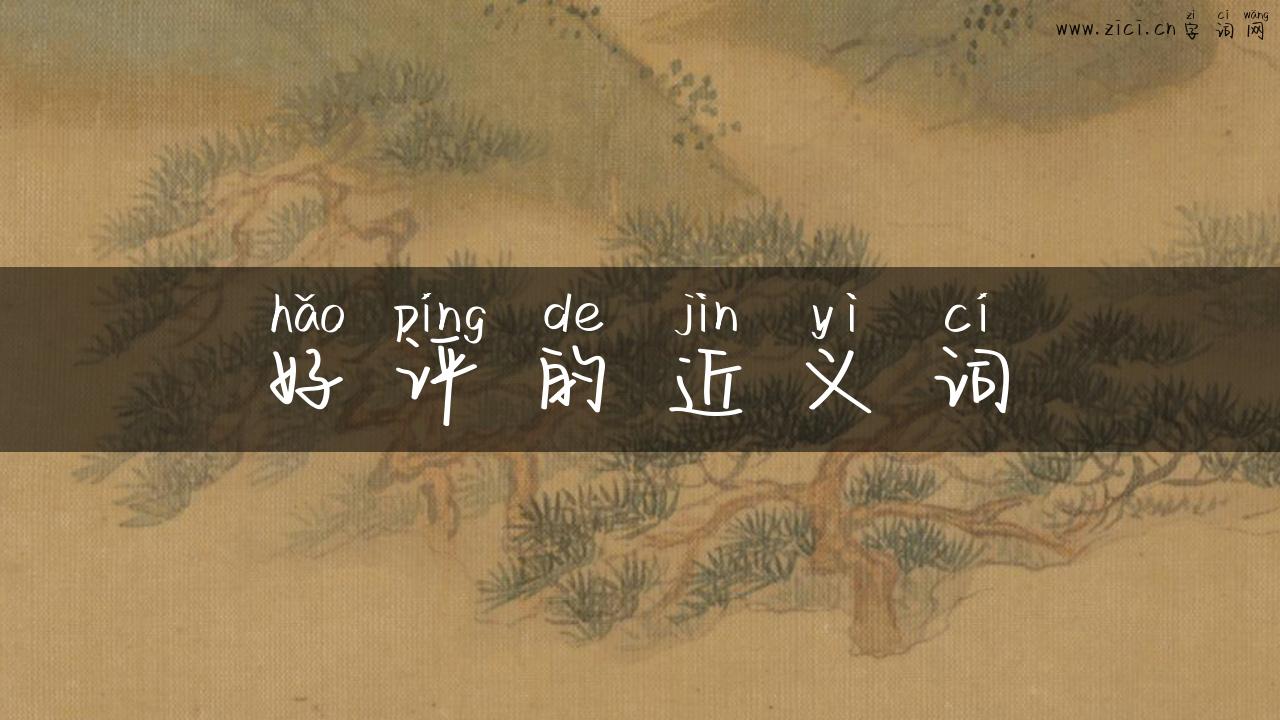 zì cí wǎng
www.zici.cn 字词网
hǎo píng de jìn yì cí
好评的近义词